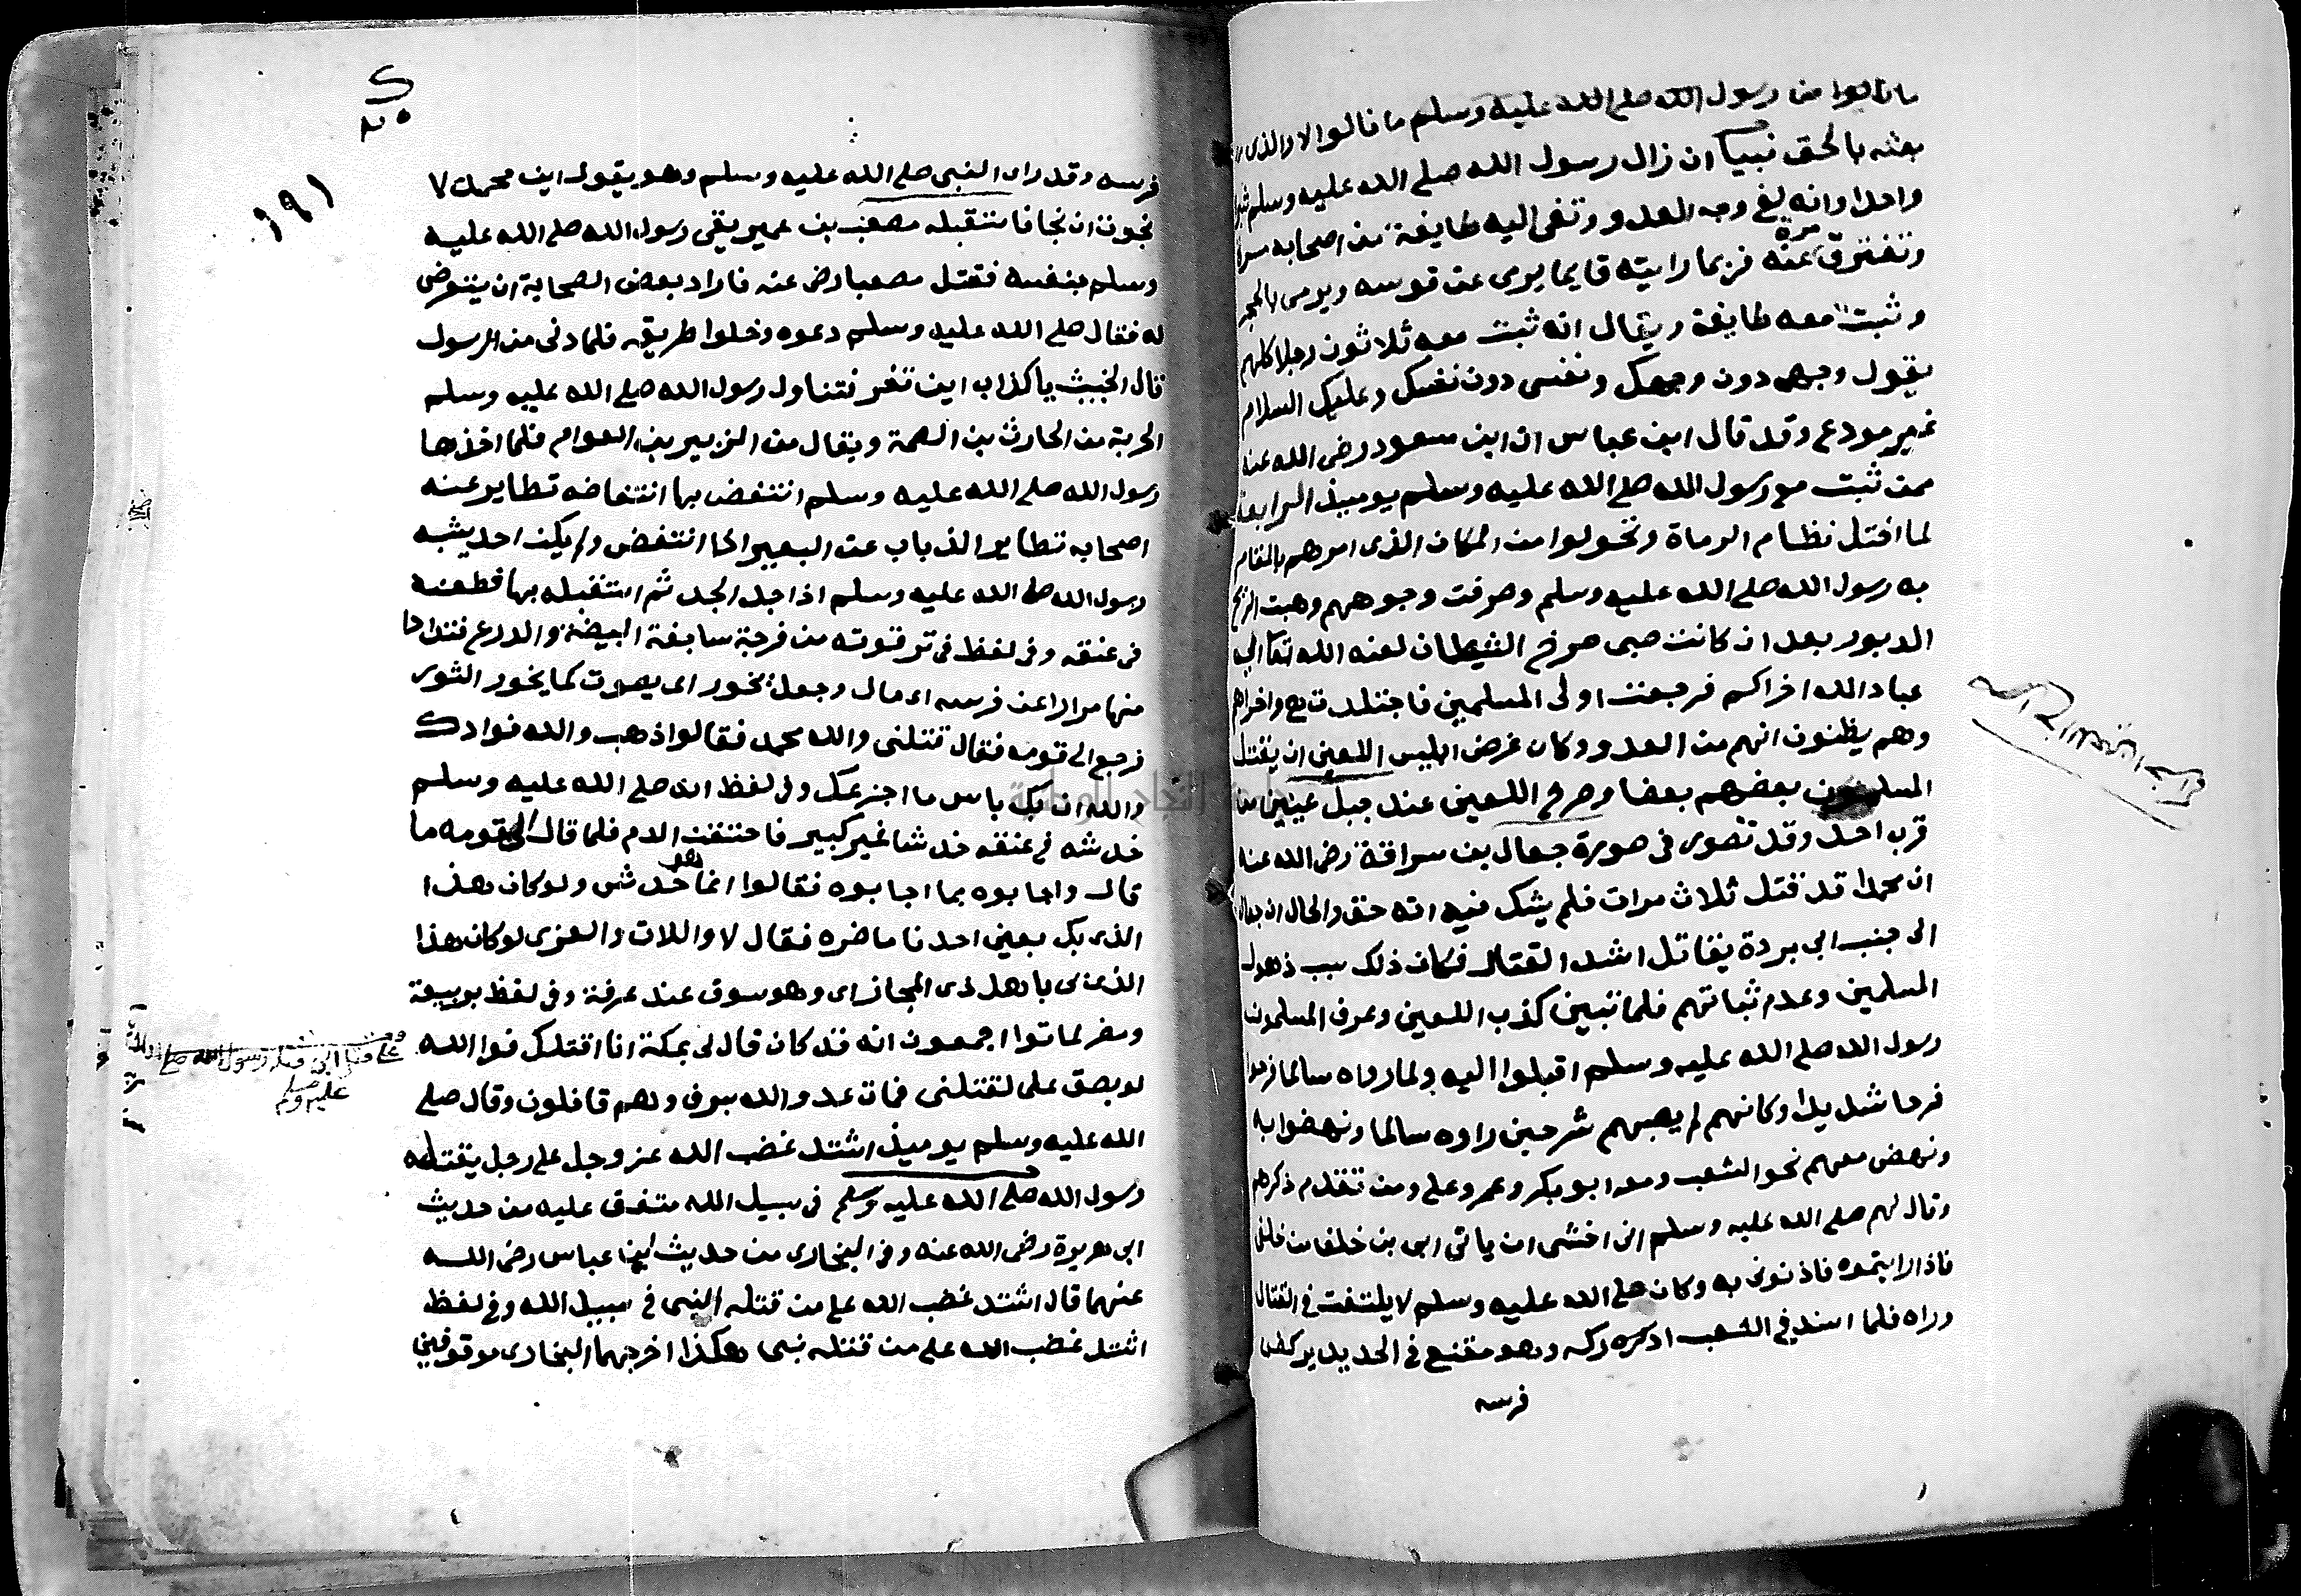 ما نالوا من رسول الله صلى الله عليه وسلم ما نالوا لا والذي
بعثه بالحق نبيا ان زال رسول الله صلى الله عليه وسلم شبرا
واحدا وانه لفي وجه العدو وتفى اليه طايفة من اصحابه مرة
وتفترق عنه مرة فربما رايته قايما يرمي عن قوسه ويرمي بالحجر
وثبت معه طايفة ويقال انه ثبت معه ثلاثون رجلا كلهم
يقول وجهي دون وجهك ونفسي دون نفسك وعليك السلام
غير مودع وقد قال ابن عباس ان ابن سعود رضى الله عنه
ممن ثبت مع رسول الله صلى الله عليه وسلم يوميذ الرابعة
لما اختل نظام الرماة وتحولوا من المكان الذي امرهم بالمقام
به رسول الله صلى الله عليه وسلم وصرفت وجوههم وهبت الريح
الدبور بعد ان كانت صبى صرخ الشيطان لعنه الله تعالى
عباد الله اخراكم فرجعت اولى المسلمين فاجتلدت مع اخراهم
وهم يظنون انهم من العدو وكان غرض ابليس اللعين ان يقتل
المسلمون بعضهم بعضا وصرخ اللعين عند جبل عينين من
قرب احد وقد تصور في صورة جعال بن سراقة رضى الله عنه
ان محمدا قد قتل ثلاث مرات فلم يشك فيه انه حق والحال ان جعال
الى جنب ابي بردة يقاتل اشد القتال فكان ذلك سبب ذهول
المسلمين وعدم ثباتهم فلما تبين كذب اللعين وعرف المسلمون
رسول الله صلى الله عليه وسلم اقبلوا اليه ولما راوه سالما فرحوا
فرحا شديدا وكانهم لم يصبهم شر حين راوه سالما ونهضوا به
ونهض معهم نحو الشعب ومعه ابو بكر وعمر وعلي ومن تقدم ذكرهم
وقال لهم صلى الله عليه وسلم اني اخشى ان ياتي ابي بن خلف من خلفي
فاذا رايتموه فاذنوني به وكان صلى الله عليه وسلم لا يلتفت في القتال
وراه فلما اسند في الشعب ادركه وهو مقنع في الحديد يركض
فرسه
٢٥
١٩١
فرسه وقد راى النبي صلى الله عليه وسلم وهو يقول اين محمد لا
نجوت ان نجا فاستقبله مصعب بن عمير يقي رسول الله صلى الله عليه
وسلم بنفسه فقتل مصعبا رضى عنه فاراد بعض الصحابة ان يتعرض
له فقال صلى الله عليه وسلم دعوه وخلوا طريقه فلما دنى من الرسول
قال الخبيث يا كذاب اين تفر فتناول رسول الله صلى الله عليه وسلم
الحربة من الحارث بن الصمة ويقال من الزبير بن العوام فلما اخذها
رسول الله صلى الله عليه وسلم انتفض بها انتفاضه تطاير عنه
اصحابه تطاير الذباب عن البعير اذا انتفض ولم يكن احد يشبه
رسول الله صلى الله عليه وسلم اذا جد الجد ثم استقبله بها فطعنه
في عنقه وفي لفظ في ترقوته من فرجة سابغة البيضة والدرع فتدادا
منها مرارا عن فرسه اى مال وجعل يخور اى يصوت كما يخور الثور
فرجع الى قومه فقال قتلني والله محمد فقالوا ذهب والله فوادك
والله ان بك باس ما اجزعك وفي لفظ انه صلى الله عليه وسلم
خدشه في عنقه خدشا غير كبير فاحتقن الدم فلما قال لقومه ما
قال واجابوه بما اجابوه فقالوا انما هو خدش ولو كان هذا
الذى بك بعين احدنا ما ضره فقال لا واللات والعزى لو كان هذا
الذى بى باهل ذى المجاز اى وهو سوق عند عرفة وفي لفظ بربيعة
ومضر لماتوا اجمعون انه قد كان قال لى بمكة انا اقتلك فوالله
لو بصق على لقتلنى فمات عدو الله بسرف وهم قافلون وقال صلى
الله عليه وسلم يوميذ اشتد غضب الله عز وجل على رجل يقتله
رسول الله صلى الله عليه وسلم في سبيل الله متفق عليه من حديث
ابي هريرة رضى الله عنه وفي البخارى من حديث ابن عباس رضى الله
عنهما قال اشتد غضب الله على من قتله النبى في سبيل الله وفي لفظ
اشتد غضب الله على من قتله نبى هكذا اخرجهما البخارى موقوفين
ابي قتله رسول الله صلى الله
عليه وسلم